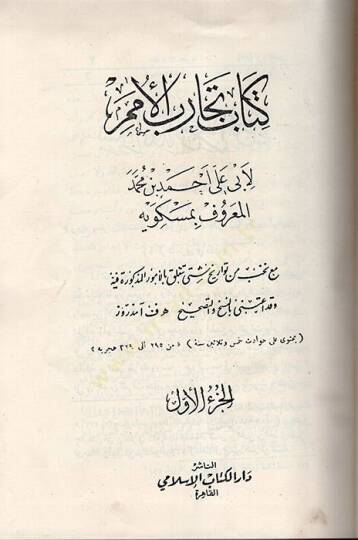 كتاب تجارب الأمم
لابى على احمد بن محمد
المعروف بمسكويه
مع نخب من تواريخ شتى تتعلق بالأمور المذكورة فيه
وقد اعتنى بالنسخ والتصحيح ه. ف. آمدروز
( يحتوى على حوادث خمس وثلاثين سنة ) « من ٢٩٥ الى ٣٢٩ هجرية »
الجزء الأول
الناشر
دار الكتاب الإسلامي
القاهرة